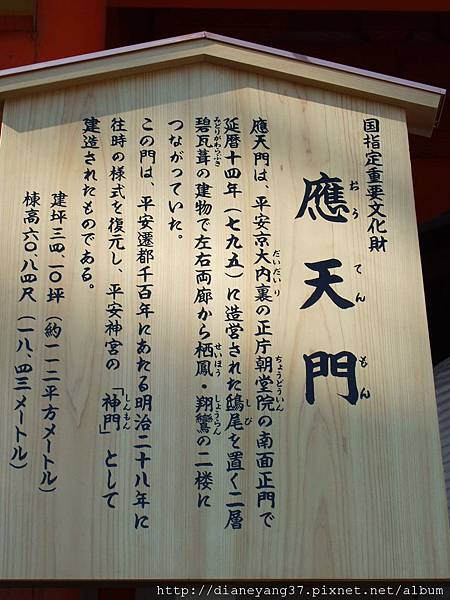 国指定重要文化財
應天門
おうてんもん
應天門は、平安京大内裏の正庁朝堂院の南面正門で
だいだいり
ちょうどういん
延暦十四年（七九五）に造営された鴟尾を置く二層
しび
碧瓦葺の建物で左右両廊から栖鳳・翔鸞の二楼に
みどりがわらぶき
せいほう
しょうらん
つながっていた。
この門は、平安遷都千百年にあたる明治二十八年に
往時の様式を復元し、平安神宮の「神門」として
しんもん
建造されたものである。
建坪三四、一〇坪（約一一二平方メートル）
棟高六〇、八四尺（一八、四三メートル）
http://dianeyang37.pixnet.net/album